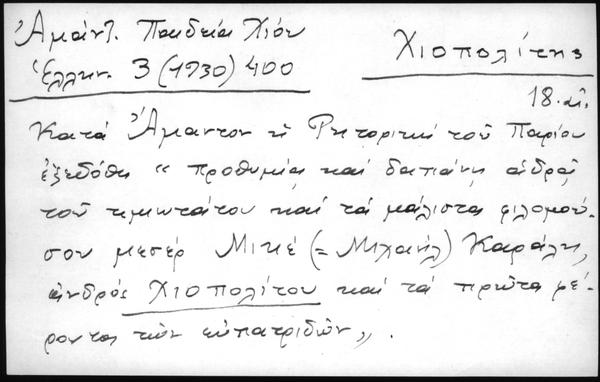 Ἀμάντ. Παιδεία Χίου
Ἑλλην. 3 (1930) 400
Χιοπολίτης
18. αἰ.
Κατὰ Ἄμαντον ἡ Ρητορικὴ τοῦ Παρίου
ἐξεδόθη " προθυμίᾳ καὶ δαπάνῃ ἀνδρὸς
τοῦ τιμιωτάτου καὶ τὰ μάλιστα φιλομού-
σου μισὲρ Μικὲ (= Μιχαὴλ) Καράλη,
ἀνδρὸς Χιοπολίτου καὶ τὰ πρῶτα φέ-
ροντος τῶν εὐπατριδῶν ".